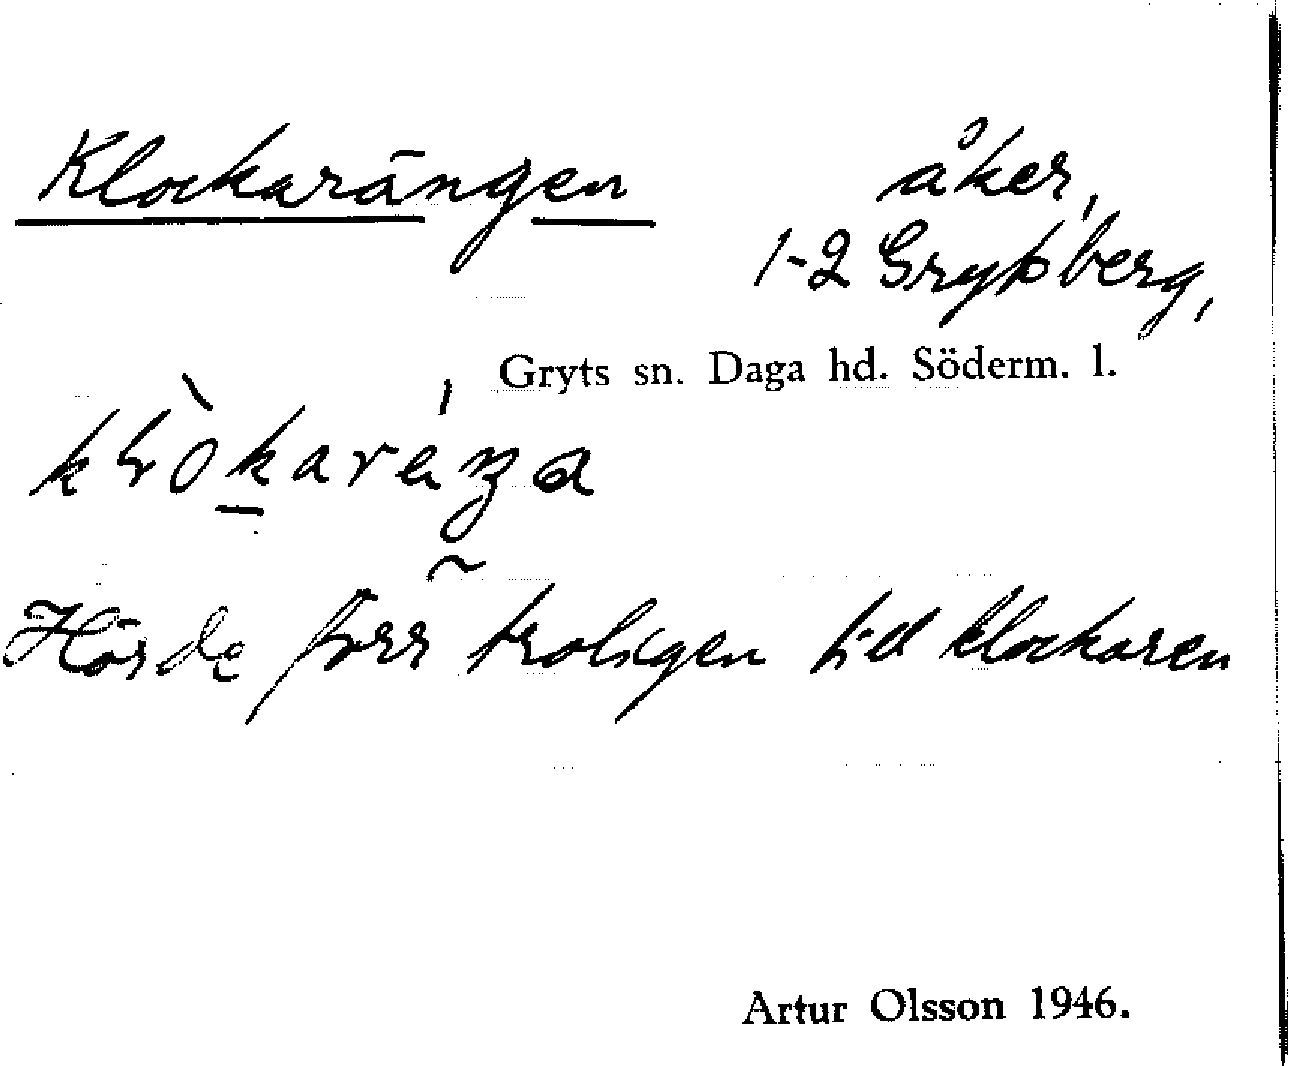 Klockarängen åker,
1-2 Grypberg,
Gryts sn. Daga hd. Söderm. l.
Hörde förr troligen till klockaren
Artur Olsson 1946.